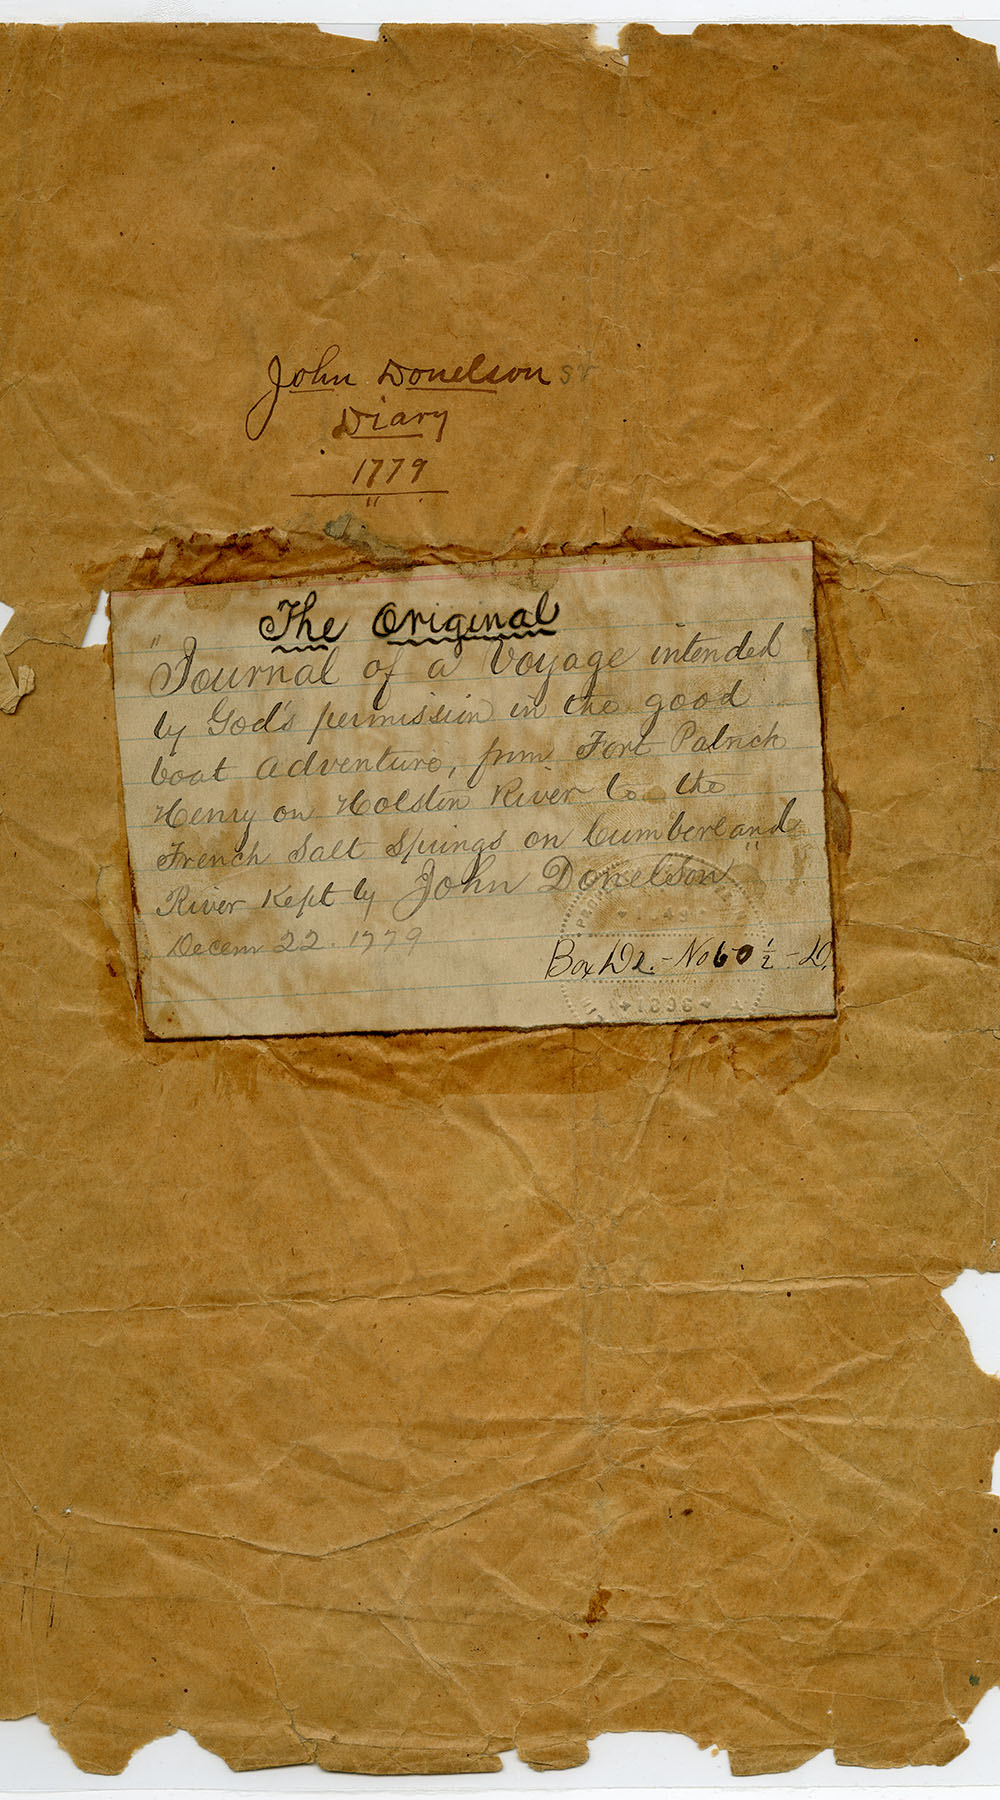 John Donelson Sr
Diary
1779
"
The Original
"Journal of a Voyage intended
by God's permission in the good
boat Adventure, from Fort Patrick
Henry on Holston River to the
French Salt Springs on Cumberland
River Kept by John Donelson"
Decem 22. 1779
1849
Box D2. - No 60 ½ - D.
1898